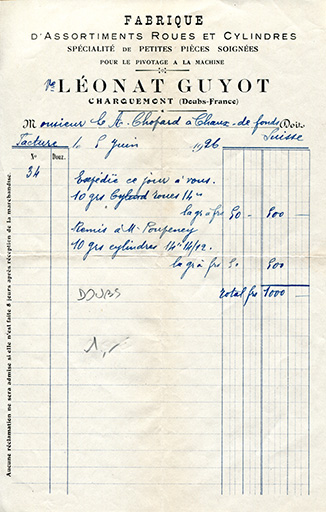 FABRIQUE
D'ASSORTIMENTS ROUES ET CYLINDRES
SPÉCIALITÉ DE PETITES PIÈCES SOIGNÉES
POUR LE PIVOTAGE A LA MACHINE
Vve LÉONAT GUYOT
CHARQUEMONT (Doubs-France)
Monsieur C. A. Chopard à Chaux-de fonds Doit
Suisse
Facture le 5 juin 1926
No Douz.
34 Expédié ce jour à vous.
10 grs Cylind roues 14'''
la gr à frs 50 - 500
Remis à M.
10 grs cylindres 14''' 14/12.
la gr à frs 50 500
Total frs 1000
DOUBS
1,-
Aucune réclamation ne sera admise si elle n'est faite 8 jours après réception de la marchandise.